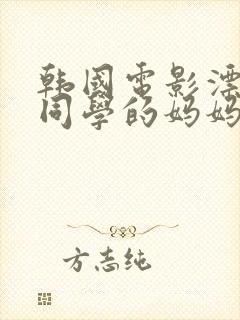 韩國电影漂
同學的妈妈
方志纯